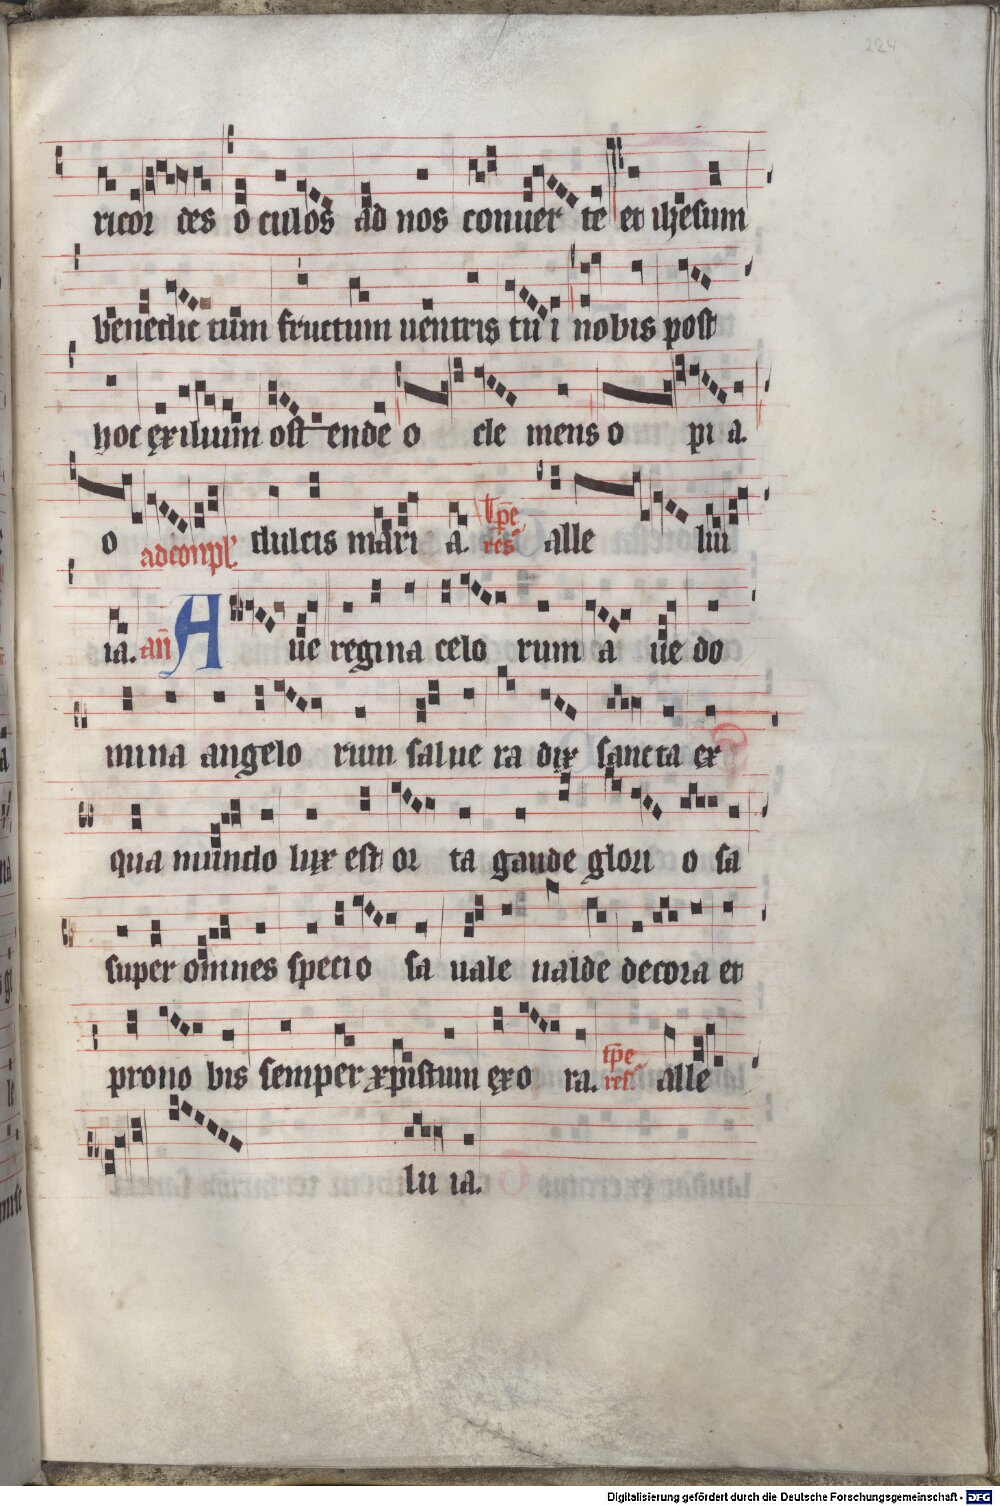 224
ricor des o culos ad nos conuer te et ihesum
benedic tum fructum uentris tu i nobis post
hoc exilium ost ende o cle mens o pi a.
o ad conpl'. dulcis mari a. alle lu
ia. an̄ Aue regina celo rum a ue do
mina angelo rum salue ra dix sancta ex
qua mundo lux est or ta gaude glori o sa
super omnes specio sa uale ualde decora et
prono bis semper xpistum exo ra. alle
lu ia.
Digitalisierung gefördert durch die Deutsche Forschungsgemeinschaft - DFG